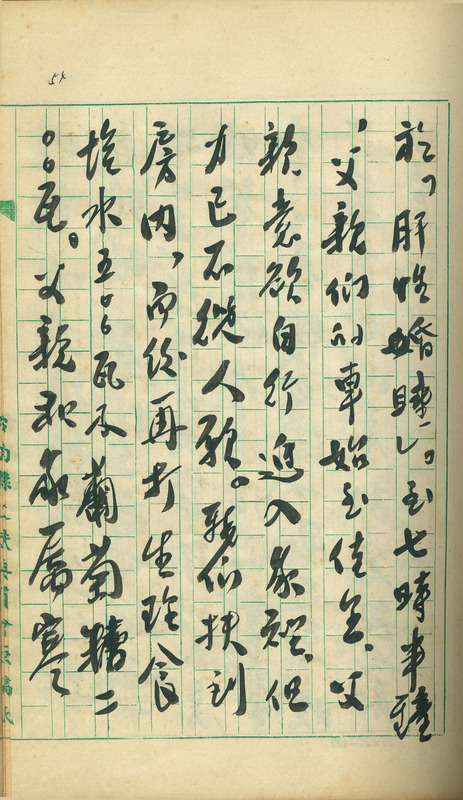 54
於「肝性婚睡」。至七時半鐘
，父親們的車始至佳里，父
親意欲自行進入家裡，但
力已不從人願。弟們扶到
房內，而後再打生理食
塩水五〇〇瓦及葡萄糖二
〇〇瓦。父親和家屬寒